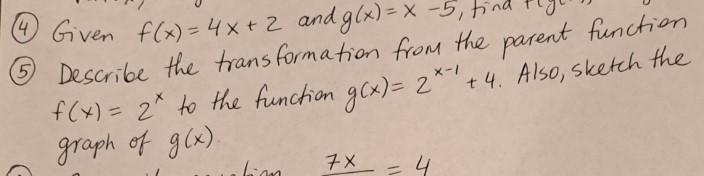 ④ Given f(x) = 4x + 2 and g(x) = x - 5, find
⑤ Describe the transformation from the parent function
f(x) = 2^x to the function g(x) = 2^(x-1) + 4. Also, sketch the
graph of g(x).
7x = 4